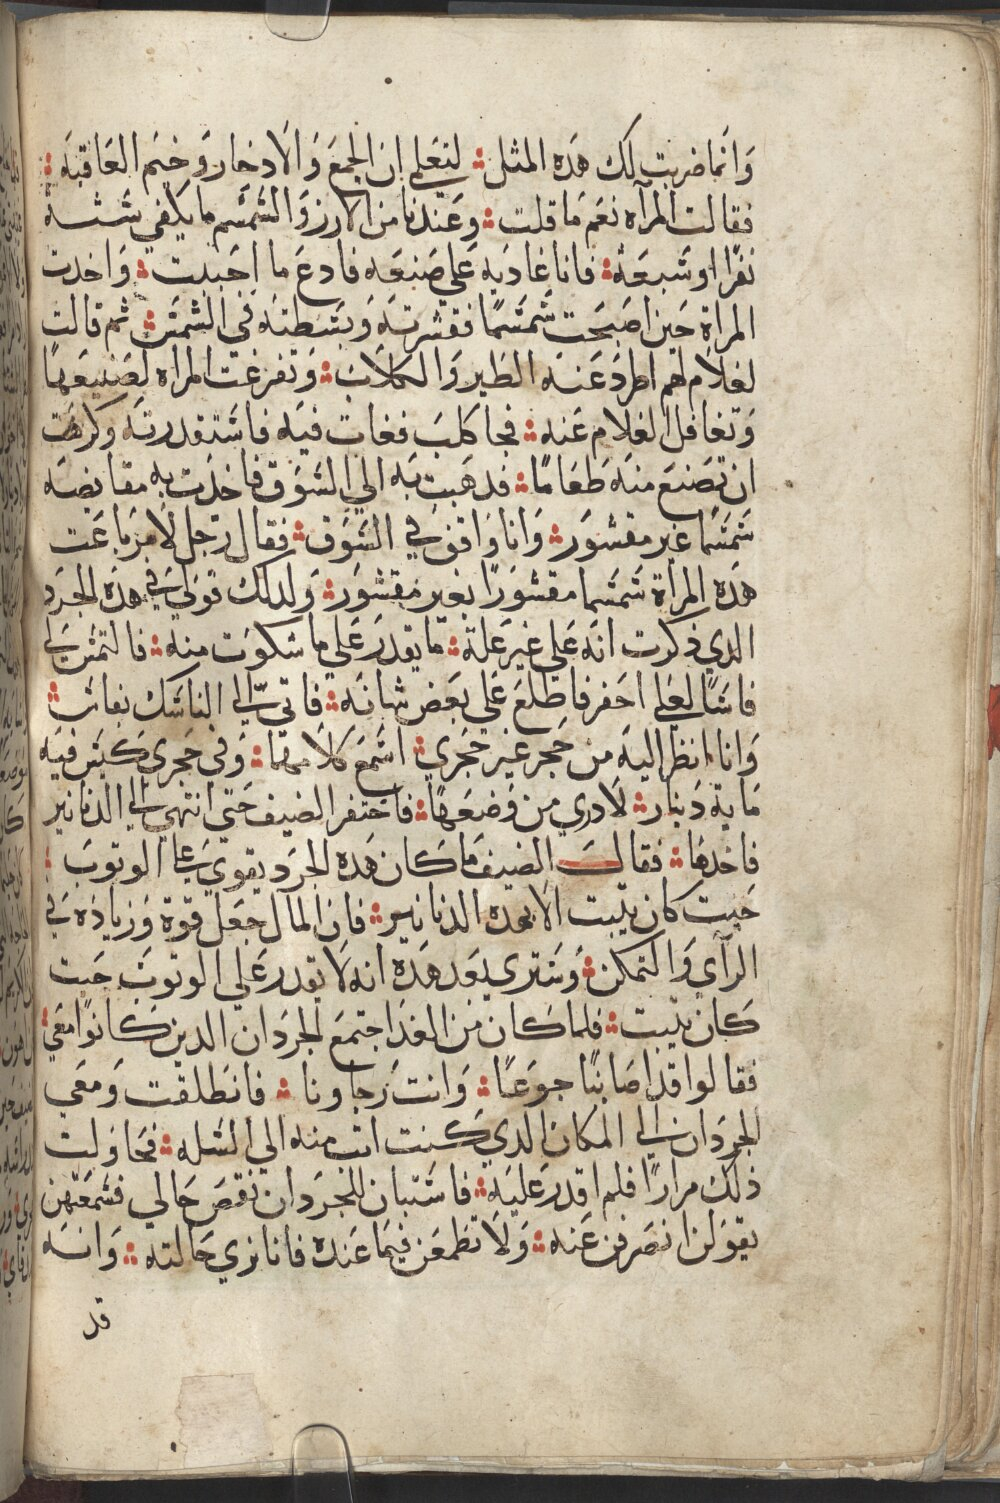 وَانما ضربت لك هَده المثل لتعَلمي ان الجمعَ وَالادخار وَخيَم العَاقبَه
فقالت المرآه نعَم مَا قلت وَعَندنا من الارز وَالسَمسَم ما يَكفي سَتـــة
نفرًا اوسَبعَة فانا غاديَه عَلي صَنعَه فادعَ ما احَببت وَاخدت
المراة حَين اصَبحَت سَمسَمًا فقشرتَه وَبسَطتَه فَي الشمسَ ثم قالت
لغلام لهم اطردَ عَنه الطَير وَالكلاب وَتفرغت المراه لصَنيعَها
وَتغافل الغلام عَنه فجا كلبَ فعَات فيَه فاسَتقدرتَه وَكرهَت
ان تصَنعَ منهَ طَعَامًا فدهَبت بَه الي السَوَق فاخدَت به مقايضَه
سَمسَمًا غير مقشوَر وَانا وَاقف في السَوَق فقال رَجل لامرَ باعَت
هَده المرآة سَمسَما مقشوَرًا بغير مَقشوَر وَلدلك قوَلي في هَده الجرَد
الدي دكرت انَه عَلي غيرَ عَلة ما يَقدرَ عَلي ما شكوَت منه فالتمسَ لي
فاسَا لعَلي احَفر فاطلعَ عَلي بعَض شانهَ فاتي الي الناسَك بفاسَ
وَانا انظر اليَه من حَجر غيرَ حَجري اسَمعَ كلامهَما وَفي حَجري كيَسَ فيَه
مايَة دَينار لا ادري من وَضعَها فاحَتفر الضيف حَتي انتهي الي الدنانير
فاخدهَا فقالَ الضيفَ ما كان هَده الجرَد يقوي عَلي الوتوبَ
حَيت كان يَبيت الا بهَده الدنانير فان المال جَعَل قوَة وَزيادَة في
الرَآي وَالتمكن وَسَتري بعَد هَدَه انه لا يقدر عَلي الوتوَب حَيت
كان يبيت فلما كان من الغد اجتمعَ الجردان الدين كانوا معَي
فقالوا قد اصَابنا جوعًا وَانت رَجاونا فانطلقت وَمعَي
الجردان الي المكان الدي كنت اتب منه الي السَله فحَاوَلت
دلك مرارًا فلم اقدر عَليَه فاسَتبان للجردان نقصَ حَالي فسَمعَتهن
يقوَلن انصَرفن عَنه وَلا تطَمعَن فيما عَنده فانا نري حَالته وَانه
قد